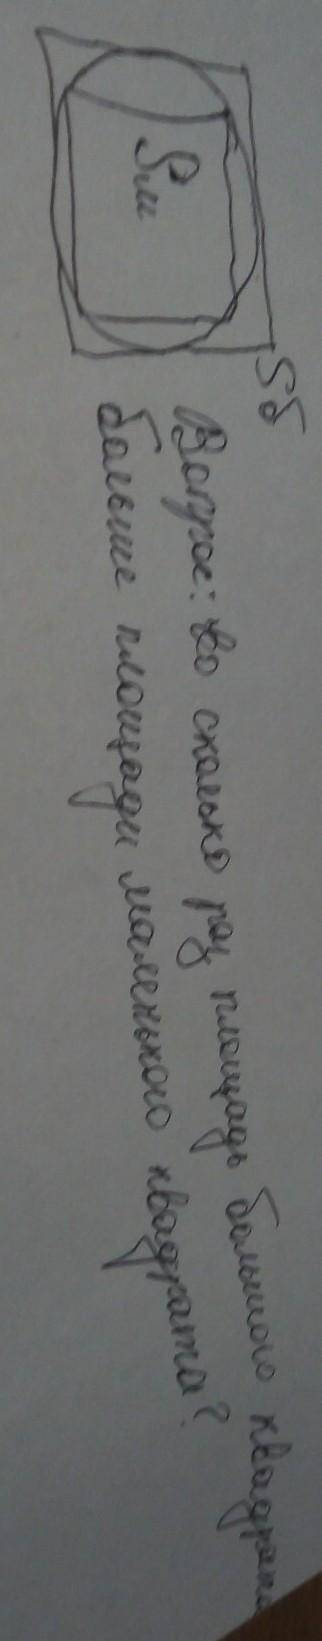 Sм
Sб
Вопрос: во сколько раз площадь большого квадрата
больше площади маленького квадрата?